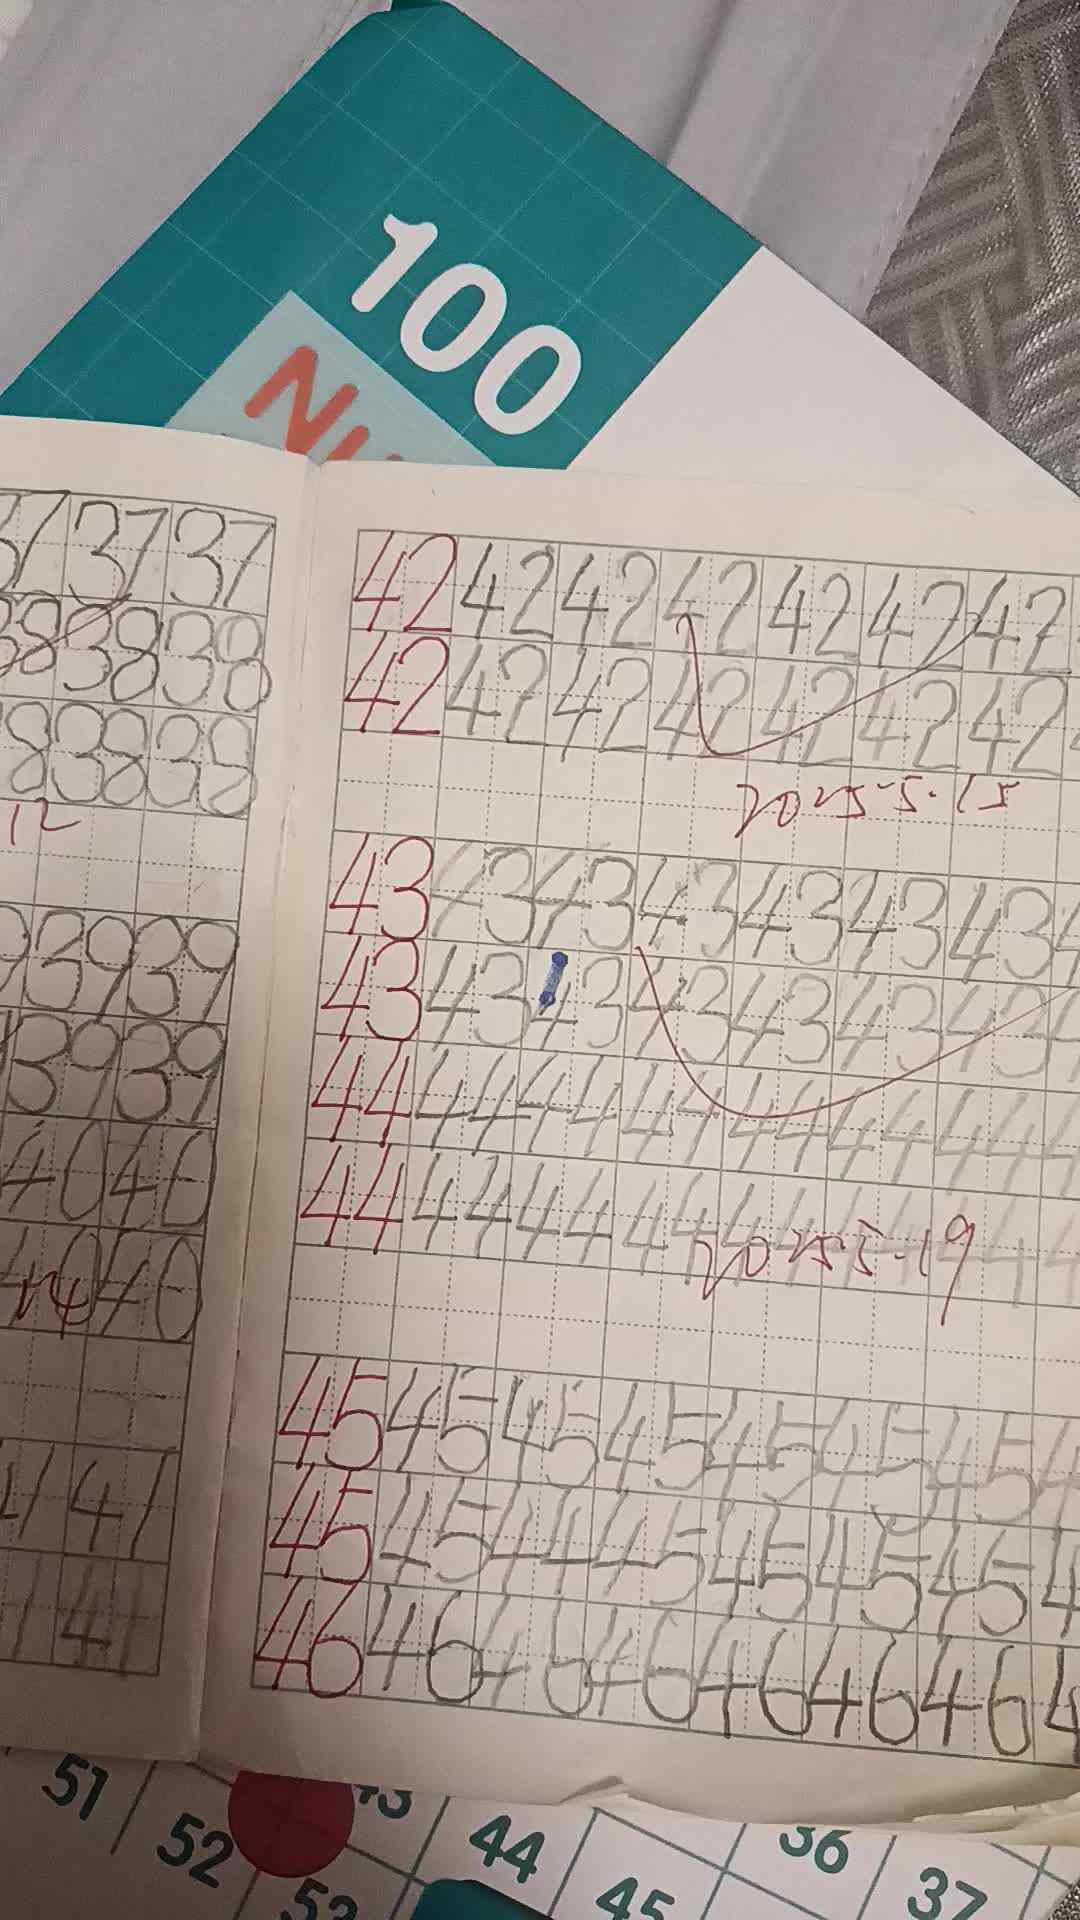 100
37 37
38 38 38
8 38 38
12
39 39
39 39
40 40
40 40
14
41
41
42 42 42 42 42 42 42
42 42 42 42 42 42 42
2025.5.15
43 43 43 43 43 43 43
43 43 43 43 43 43 43
44 44 44 44 44 44 44
44 44 44 44 44 44 44
2025.5.19
45 45 45 45 45 45 45
45 45 44 45 45 45 45
46 46 46 46 46 46 46
51 52 53
43 44 45
36 37